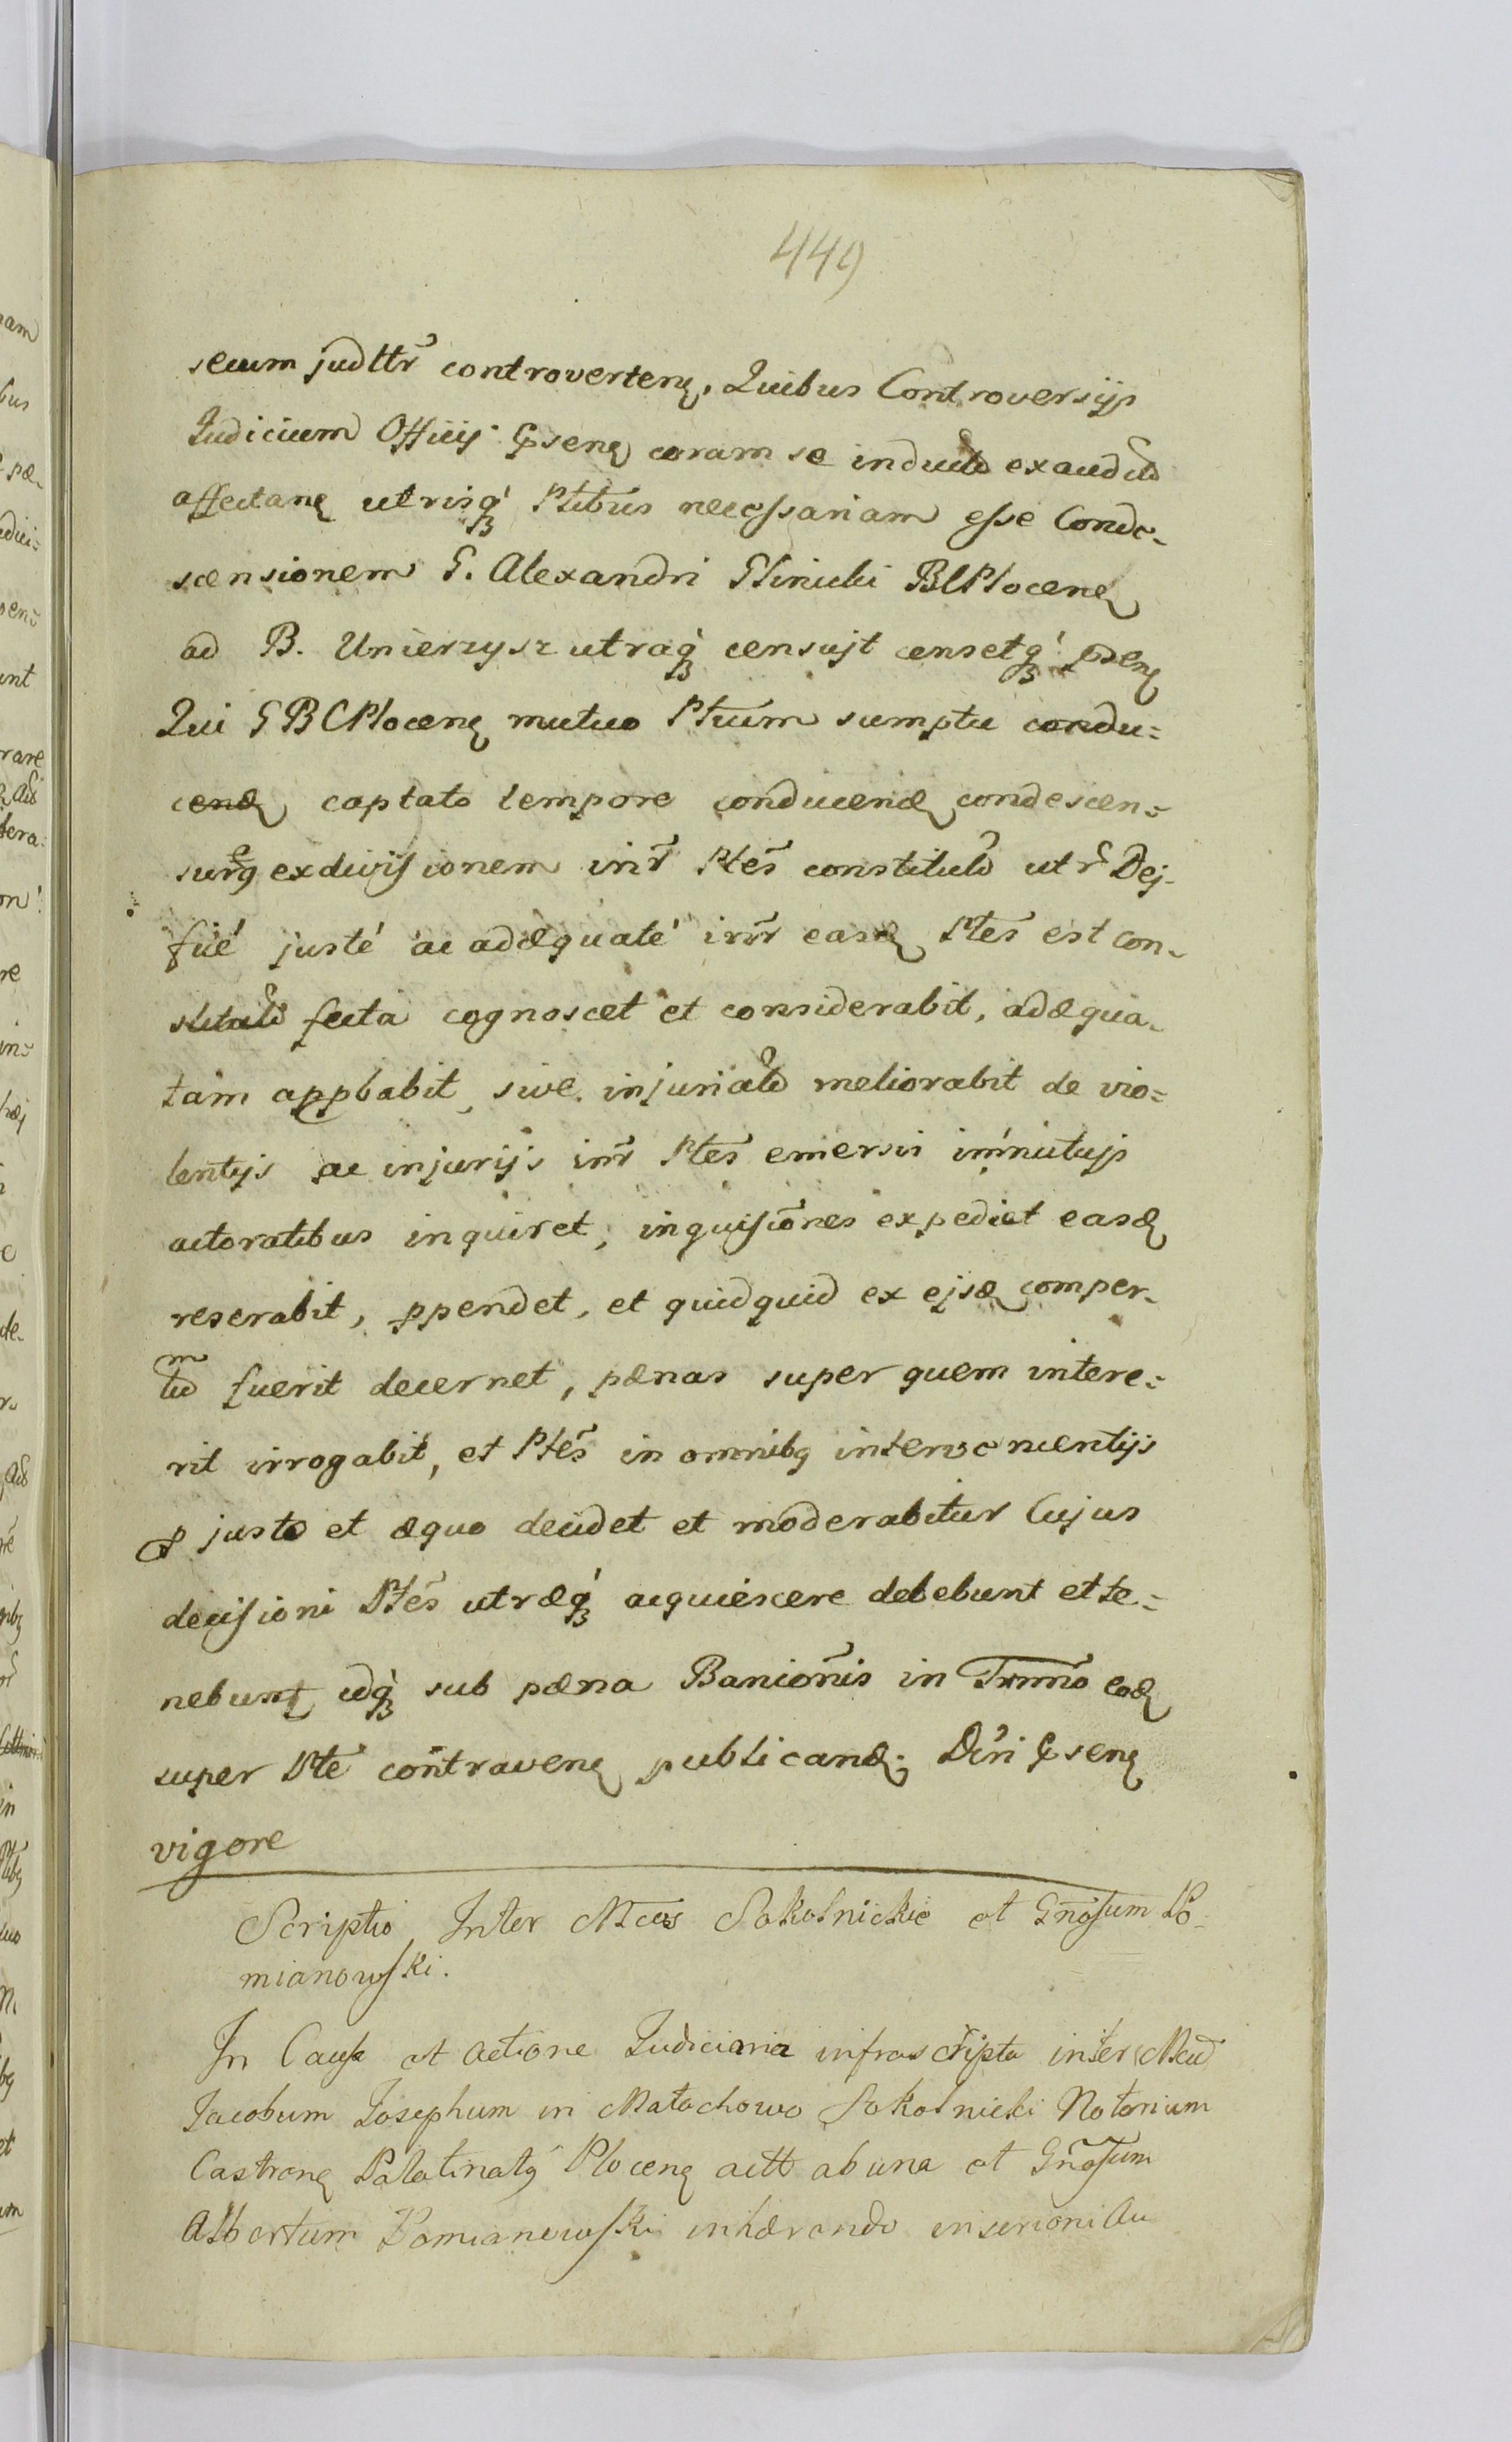 449
secum judttr̃ controverteñ, Quibus Controversijs
Judicium Officij p̃señ coram se inductd exauditd
affectanę utrisq́ꝫ Ptibus necessariam esse Conde-
scensionem G. Alexandri Glinicki BCPloceñ
ad B. Unierzysz utraq́ꝫ censujt censetq́ꝫ p̃señ
Qui G BCPloceñ mutuo Ptium sumptu condu=
cenđ captato tempore conducenđ condescen=
surq exdivisionem intr̃ Ptes̃ constitutd utr̃ Dej-
fiié justé ac adæquaté intr̃ easđ Ptes̃ est con-
stitutd facta cognoscet et considerabit, adæqua-
tam appbabit, sive injuriatd meliorabit de vio=
lentijs ac injurijs intr̃ Ptes̃ emersis im̃nutujs
actoratibus inquiret, inquisiões expediet easđ
reserabit, ppendet, et quidquid ex ejsđ comper-
tũ fuerit decernet, pænas super quem intere=
rit irrogabit, et Ptes̃ in omnibꝫ interveneentijs
ꝓ justo et æquo decidet et moderabitur Cujus
decisioni Ptes̃ utræq́ꝫ acquiescere debebunt et te=
nebunt, idq́ꝫ sub pæna Banioñis in Trmño eođ
super Pte contraveñ publicanđ. Dcr̃i p̃señ
vigore
Scriptio Inter Mcos Sokolnickie et Gñosum Po-
mianowski.
In Causa et actione Judiciaria infrascripta inter Mcũ
Jacobum Josephum in Małachowo Sokolnicki Notarium
Castreñ Palatinatꝫ Ploceñ actt ab una et Gñosum
Albertum Pomianowski inhærendo inserioni Au